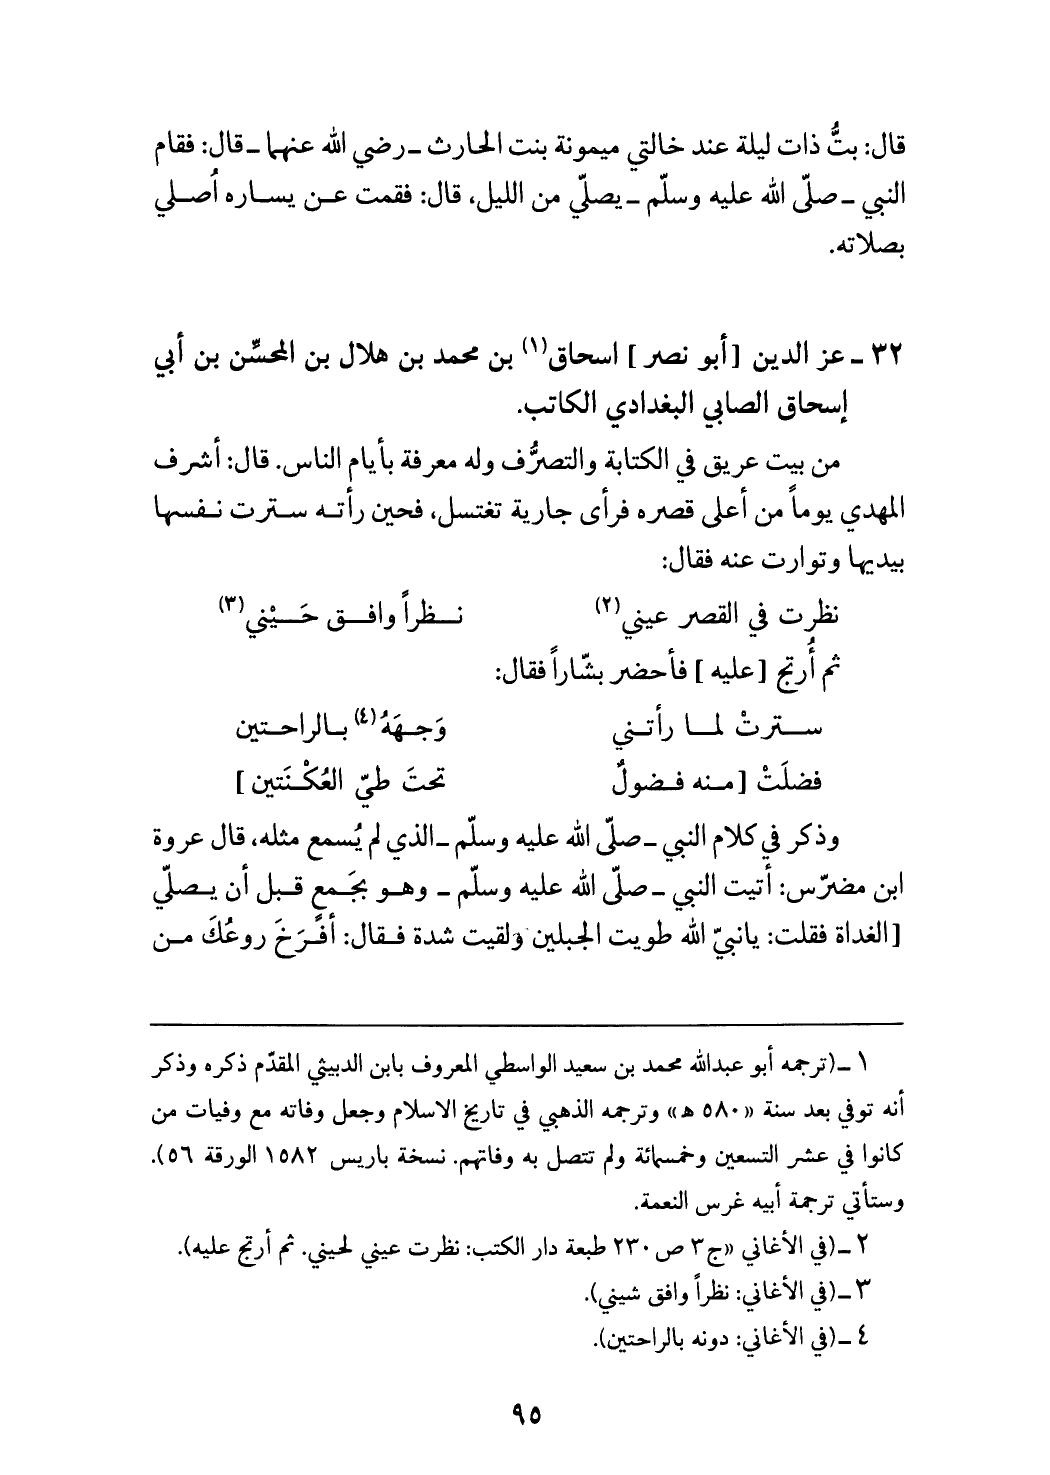 قال: بتُّ ذات ليلة عند خالتي ميمونة بنت الحارث ـ رضي الله عنهما ـ قال: فقام
النبي ـ صلّى الله عليه وسلّم ـ يصلّي من الليل، قال: فقمت عن يساره أُصلي
بصلاته.
٣٢ ـ عز الدين [أبو نصر] اسحاق(١) بن محمد بن هلال بن المحسِّن بن أبي
إسحاق الصابي البغدادي الكاتب.
من بيت عريق في الكتابة والتصرُّف وله معرفة بأيام الناس. قال: أشرف
المهدي يوماً من أعلى قصره فرأى جارية تغتسل، فحين رأته سترت نفسها
بيديها وتوارت عنه فقال:
نظرت في القصر عيني(٢) نظراً وافق حَيْني(٣)
ثم أُرتج [عليه] فأحضر بشّاراً فقال:
سترتْ لما رأتني وَجهَهُ(٤) بالراحتين
فضلَتْ [منه فضولٌ تحتَ طيّ العُكْنَتين]
وذكر في كلام النبي ـ صلّى الله عليه وسلّم ـ الذي لم يُسمع مثله، قال عروة
ابن مضرّس: أتيت النبي ـ صلّى الله عليه وسلّم ـ وهو بجَمع قبل أن يصلّي
[الغداة فقلت: يانبيّ الله طويت الجبلين ولقيت شدة فقال: أفْرَخَ روعُكَ من
١ ـ (ترجمه أبو عبدالله محمد بن سعيد الواسطي المعروف بابن الدبيثي المقدّم ذكره وذكر
أنه توفي بعد سنة «٥٨٠ ه» وترجمه الذهبي في تاريخ الاسلام وجعل وفاته مع وفيات من
كانوا في عشر التسعين وخمسمائة ولم تتصل به وفاتهم. نسخة باريس ١٥٨٢ الورقة ٥٦).
وستأتي ترجمة أبيه غرس النعمة.
٢ ـ (في الأغاني «ج٣ ص٢٣٠ طبعة دار الكتب: نظرت عيني لحيني. ثم أرتج عليه).
٣ ـ (في الأغاني: نظراً وافق شيني).
٤ ـ (في الأغاني: دونه بالراحتين).
٩٥